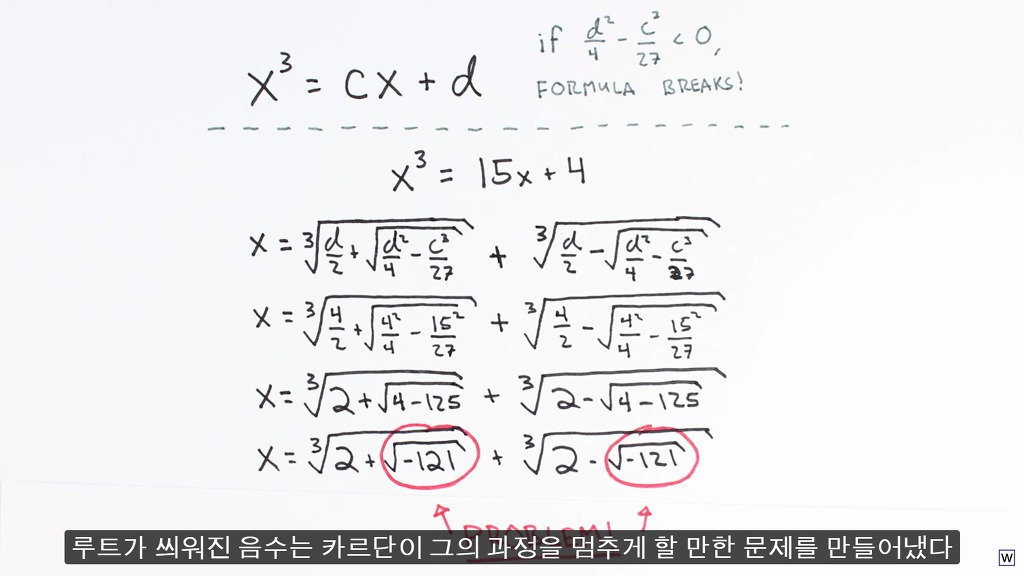 x³ = cx + d
if d²/4 - c³/27 < 0,
FORMULA BREAKS!
x³ = 15x + 4
x = ³√(d/2 + √(d²/4 - c³/27)) + ³√(d/2 - √(d²/4 - c³/27))
x = ³√(4/2 + √(4²/4 - 15²/27)) + ³√(4/2 - √(4²/4 - 15²/27))
x = ³√(2 + √(4-125)) + ³√(2 - √(4-125))
x = ³√(2 + √(-121)) + ³√(2 - √(-121))
PROBLEM!
루트가 씌워진 음수는 카르단이 그의 과정을 멈추게 할 만한 문제를 만들어냈다
W